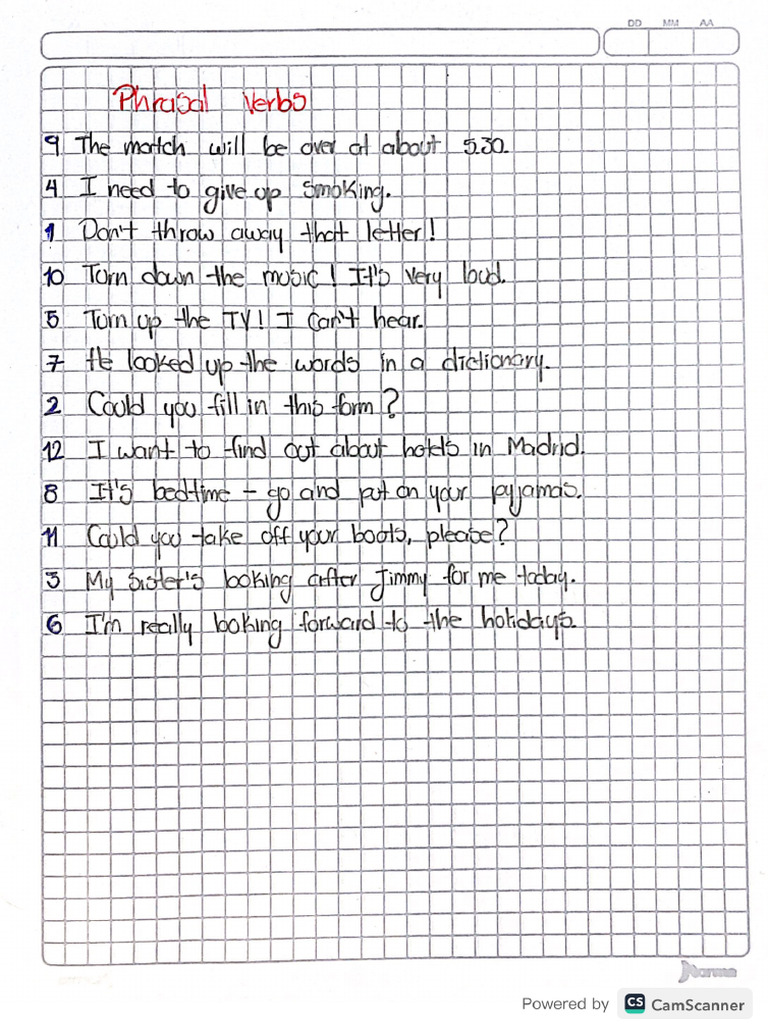 DD MM AA
Phrasal Verbs
9 The match will be over at about 5.30.
4 I need to give up smoking.
1 Don't throw away that letter!
10 Turn down the music! It's very loud.
5 Turn up the TV! I can't hear.
7 He looked up the words in a dictionary.
2 Could you fill in this form?
12 I want to find out about hotels in Madrid.
8 It's bedtime - go and put on your pyjamas.
11 Could you take off your boots, please?
3 My sister's looking after Jimmy for me today.
6 I'm really looking forward to the holidays.
Norma
Powered by CS CamScanner